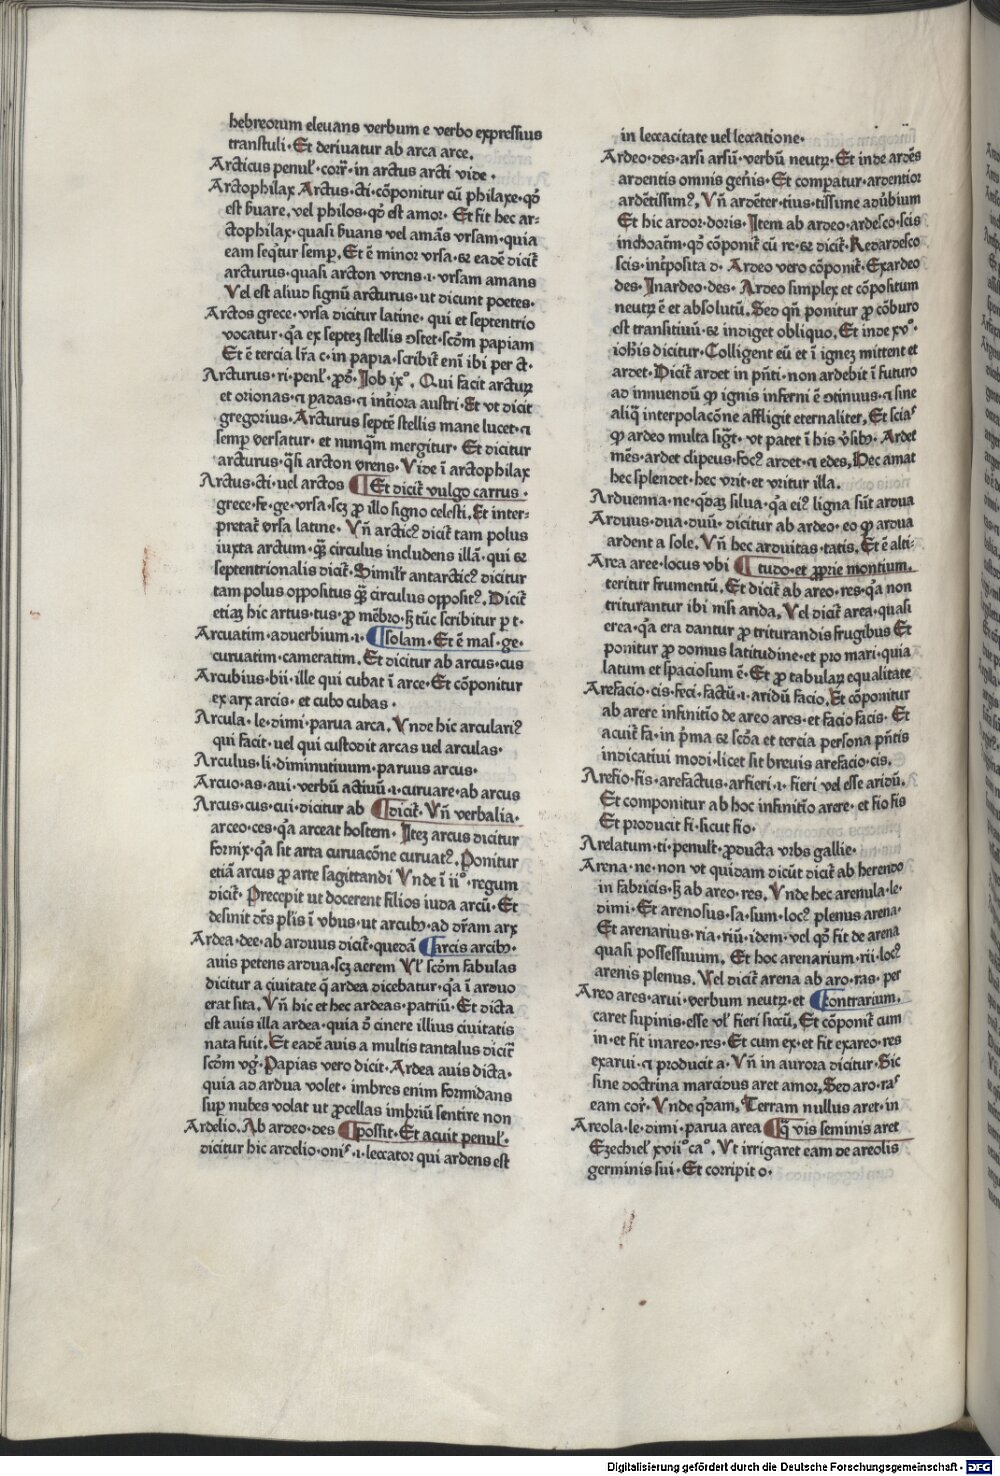 hebreorum eleuans verbum e verbo expressius
transtuli· Et deriuatur ab arca arce.
Arcticus penul̄· corr̄· in arctus arcti vide·
Arctophilax Arctus·cti·cōponitur cū philaxe·qd̓
est ẜuare, vel philos·qd̓ est amor· Et fit hec ar⸗
ctophilax·quasi ẜuans vel amās vrsam·quia
eam seqͥtur semꝑ. Et ē minor vrsa·⁊ eadē dicit̄
arcturus·quasi arcton vrens·ı·vrsam amans
Vel est aliud signū arcturus·ut dicunt poetes·
Arctos grece·vrsa dicitur latine·qui et septentrio
vocatur·qͣ ex septeꝫ stellis ↄstet·scd̓m papiam
Et ē tercia lr̄a c·in papia·scribit̄ enī ibi per ct·
Arcturus·ri·penl̄·ꝓd̓·Iob ix°. Qui facit arcturꝫ
et orionas·⁊ yadas·⁊ int̓iora austri·Et vt dicit
gregorius·Arcturus septē stellis mane lucet·⁊
semꝑ versatur·et nunqͣm mergitur· Et dicitur
arcturus·qͣsi arcton vrens·Vide ī arctophilax
Arctus·cti·uel arctos ¶Et dicit̄ vulgo carrus·
grece·fe·ge·vrsa·scꝫ ꝓ illo signo celesti. Et inter⸗
pretat̄ vrsa latine· Vn̄ arctic⁹ dicit̄ tam polus
iuxta arctum·qͣꝫ circulus includens illā·qui ⁊
septentrionalis dicit̄·Simil̓r antarctic⁹ dicitur
tam polus oppositus qͣꝫ circulus opposit⁹. Dicit̄
etiaꝫ hic artus·tus·ꝓ mēbro·ꝫ tūc scribitur ꝑ t·
Arcuatim·aduerbium·ı· ¶solam·Et ē mas̄·ge·
curuatim·cameratim. Et dicitur ab arcus·cus
Arcubius·bii·ille qui cubat ī arce·Et cōponitur
ex arx arcis·et cubo cubas·
Arcula·le·dimi·parua arca. Vnde hic arculari⁹
qui facit·uel qui custodit arcas uel arculas·
Arculus·li·diminutiuum·paruus arcus·
Arcuo·as·aui·verbū actiuū·ı·curuare·ab arcus
Arcus·cus·cui·dicitur ab ¶dicit̄·Vn̄ verbalia·
arceo·ces·qͣ arceat hostem· Iteꝫ arcus dicitur
fornix·qͣ sit arta curuacōne curuat⁹. Ponitur
etiā arcus ꝓ arte sagittandi Vnde ī ii°·regum
dicit̄· Precepit ut docerent filios iuda arcū·Et
desinit dt̄s pl̄is ī vbus·ut arcubꝫ·ad dr̄am arx
Ardea·dee·ab arduus dicit̄·quedā ¶arcis arcibꝫ·
auis petens ardua·scꝫ aerem Vl̓ scd̓m fabulas
dicitur a ciuitate q̄ ardea dicebatur·qͣ ī arduo
erat sita. Vn̄ hic et hec ardeas·patriū·Et dicta
est auis illa ardea·quia d̓ cinere illius ciuitatis
nata fuit. Et eadē auis a multis tantalus dicit̄
scd̓m vg̓·Papias vero dicit·Ardea auis dicta·
quia ad ardua volet·imbres enim formidans
suꝑ nubes volat ut ꝓcellas imbriū sentire non
Ardelio. Ab ardeo·des ¶possit·Et acuit penul̄·
dicitur hic ardelio·onis·ı·leccator qui ardens est
in leccacitate uel leccatione·
Ardeo·des·arsi arsū·verbū neutrꝫ·Et inde ardēs
ardentis omnis gen̓is·Et compatur·ardentior
ardētissim⁹, Vn̄ ardēter·tius·tissime adūbium
Et hic ardor·doris·Item ab ardeo·ardesco·scis
inchoatīn·qd̓ cōponit̄ cū re·⁊ dicit̄·Redardesco
scis·int̓posita d· Ardeo vero cōponit̄·Exardeo
des·Inardeo·des· Ardeo simplex et cōpositum
neutrꝫ ē et absolutū. Sed qn̄ ponitur ꝓ cōburo
est transitiuū·⁊ indiget obliquo. Et inde xv°·
ioħis dicitur·Colligent eū et ī igneꝫ mittent et
ardet·Dicit̄ ardet in pn̄ti·non ardebit ī futuro
ad innuendū ꝙ ignis inferni ē ↄtinuus·⁊ sine
aliqͣ interpolacōne affligit eternaliter, Et scias
ꝙ ardeo multa sigt̄·vt patet ī his ꝟsibꝫ· Ardet
mēs·ardet clipeus·foc⁹ ardet·⁊ edes. Hec amat
hec splendet·hec vrit·et vritur illa.
Arduenna·ne·qͣdaꝫ silua·qͣ ei⁹ ligna sūt ardua
Arduus·dua·duū·dicitur ab ardeo·eo ꝙ ardua
ardent a sole. Vn̄ hec arduitas·tatis. Et ē alti⸗
Area aree·locus vbi ¶tudo·et ꝓprie montium.
teritur frumentū. Et dicit̄ ab areo·res·qͣ non
triturantur ibi nisi arida. Vel dicit̄ area·quasi
erea·qͣ era dantur ꝓ triturandis frugibus Et
ponitur ꝓ domus latitudine·et pro mari·quia
latum et spaciosum ē·Et ꝓ tabularꝫ equalitate
Arefacio·cis·feci·factū·ı·aridū facio. Et cōponitur
ab arere infinitīo de areo ares·et facio facis· Et
acuit̄ fa·in pͥma ⁊ scd̓a et tercia persona pn̄tis
indicatiui modi·licet sit breuis arefacio·cis.
Arefio·fis·arefactus·arfieri·ı·fieri vel esse aridū.
Et componitur ab hoc infinitīo arere·et fio fis
Et producit fi·sicut fio·
Arelatum·ti·penult̄·ꝓducta vrbs gallie·
Arena·ne·non vt quidam dicūt dicit̄ ab herendo
in fabricis·ꝫ ab areo·res. Vnde hec arenula·le·
dimi·Et arenosus·sa·sum·loc⁹ plenus arena·
Et arenarius·ria·riū·idem·vel qd̓ fit de arena
quasi possessiuum. Et hoc arenarium·rii·loc⁹
arenis plenus. Vel dicit̄ arena ab aro·ras· per
Areo ares·arui·verbum neutrꝫ·et ¶contrarium.
caret supinis·esse vl̓ fieri siccū. Et cōponit̄ cum
in·et fit inareo·res·Et cum ex·et fit exareo·res
exarui·⁊ producit a·Vn̄ in aurora dicitur·Sic
sine doctrina marcidus aret amor. Sed aro·ras
eam cor̄·Vnde qͥdam, Terram nullus aret·in
Areola·le·dimi·parua area ¶qͣ vis seminis aret
Ezechiel̄ xvii°ca°·Vt irrigaret eam de areolis
germinis sui·Et corripit o·
Digitalisierung gefördert durch die Deutsche Forschungsgemeinschaft · DFG